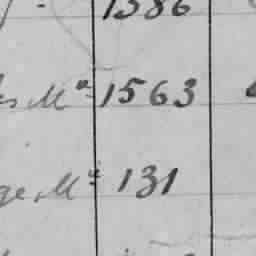 1386
es Mª 1563
ge, Mª 131